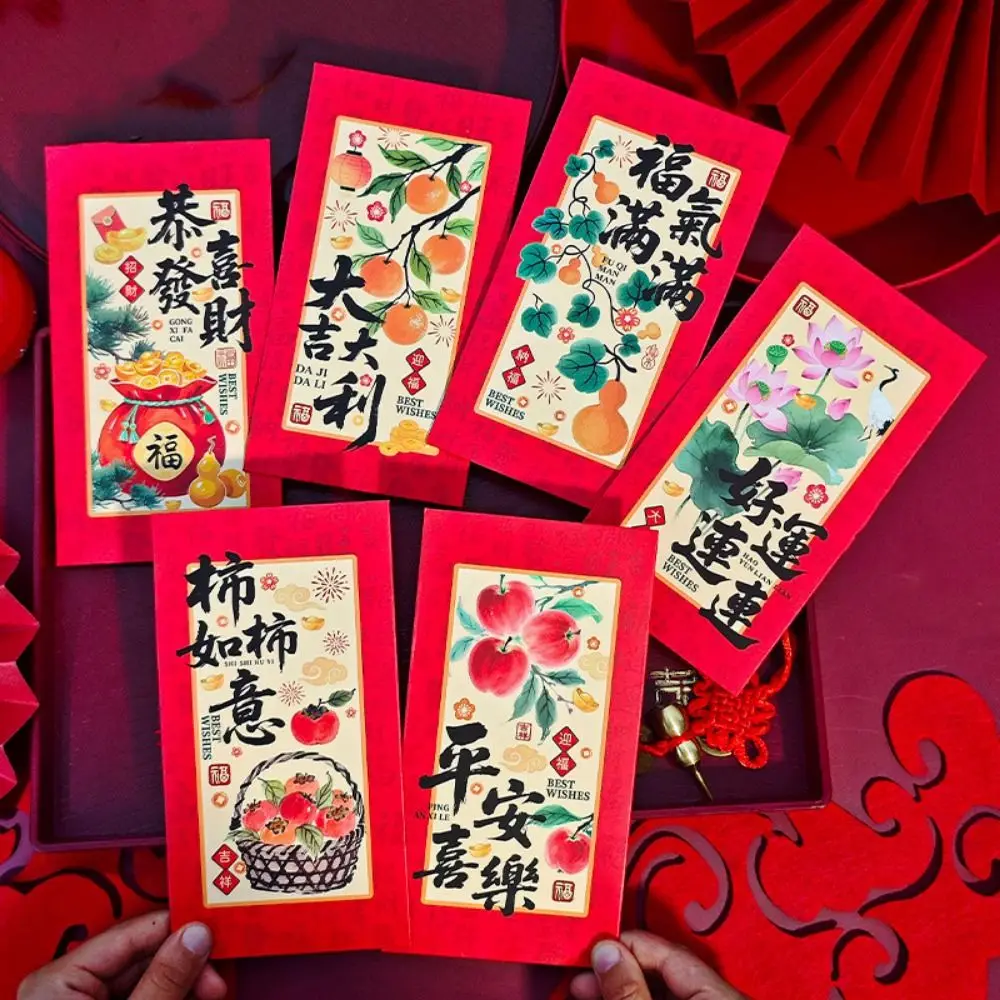 恭喜
發財
福
招財
GONG
XI FA
CAI
BEST
WISHES
福
大吉
大利
DA JI
DA LI
迎福
BEST
WISHES
福
福氣
滿滿
福
FU QI
MAN
MAN
納福
BEST
WISHES
福
好運
連連
HAO
YUN LIAN
LIAN
BEST
WISHES
柿柿
如意
SHI SHI RU YI
BEST
WISHES
福
吉祥
平安
喜樂
PING
AN XI LE
吉祥
迎福
BEST
WISHES
福